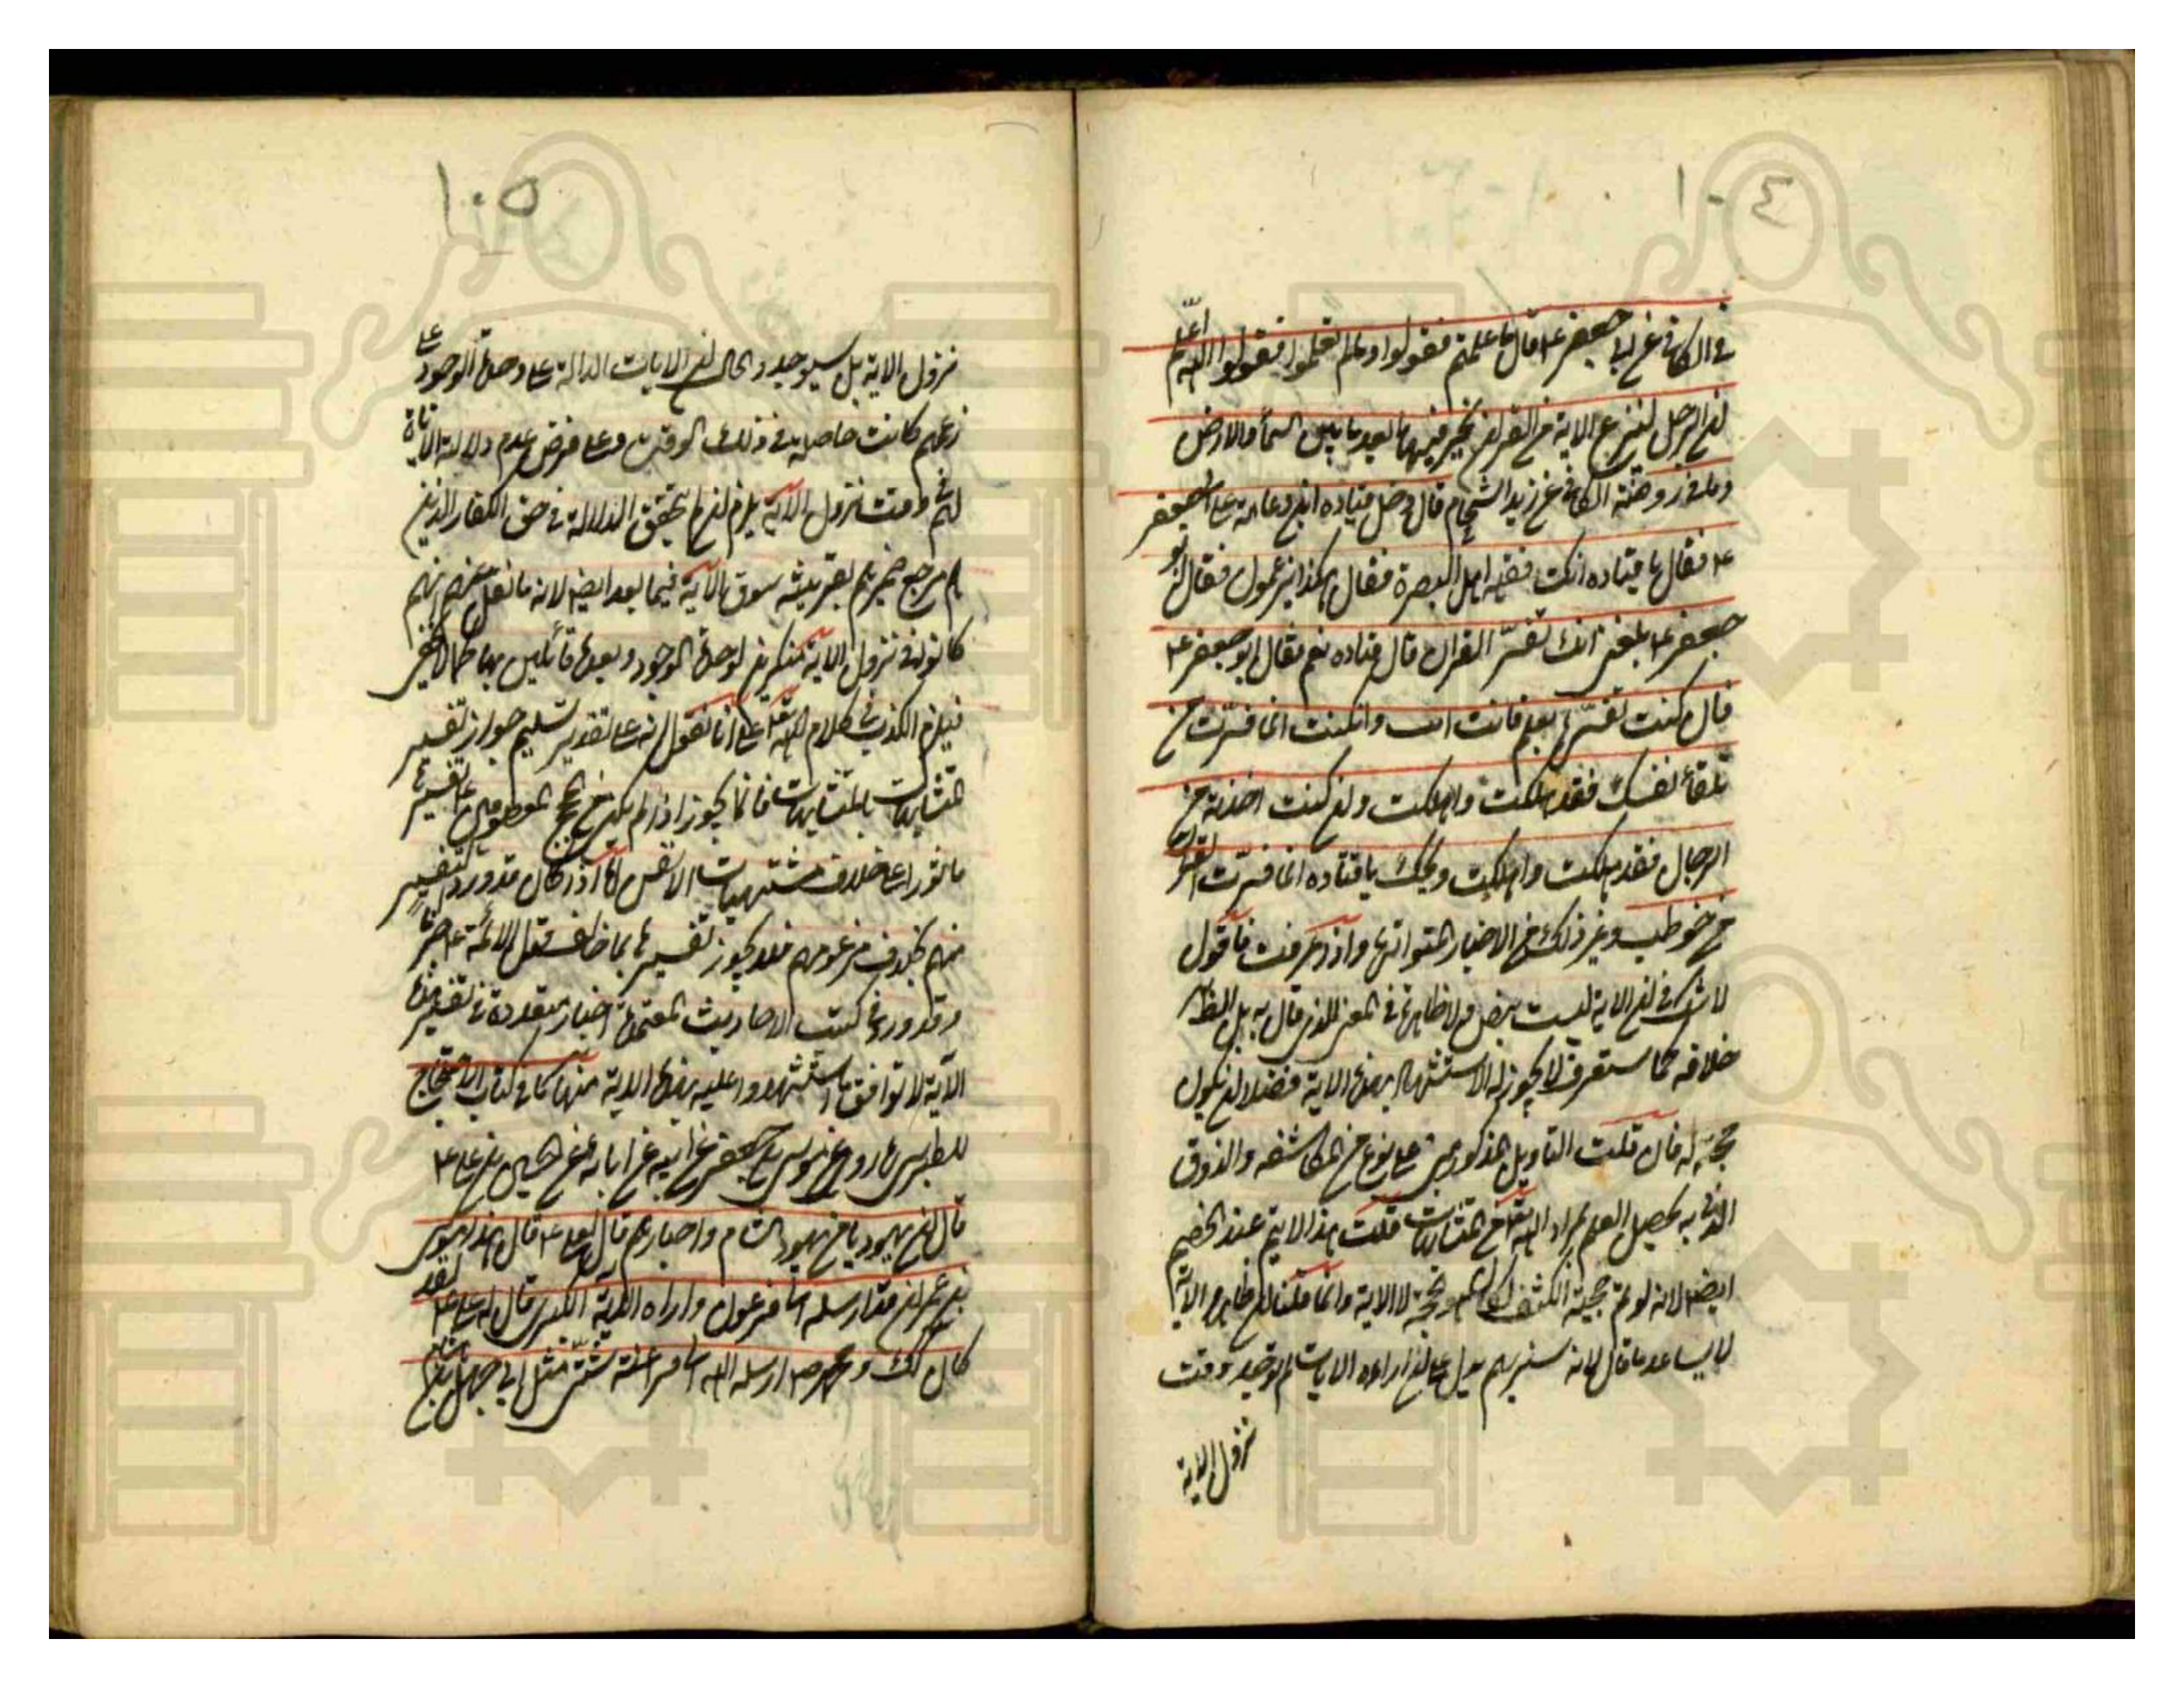 ١٠٤
في الكافي عن ابي جعفر ع قال ما علمتم فقولوا وما لم تعلموا فقولوا الله اعلم
ان الرجل لينزع الآية من القران يخر فيها ابعد ما بين السماء والارض
وما في روضة الكافي عن زيد الشحام قال دخل قتاده ابن دعامة على ابي جعفر
ع فقال يا قتاده انت فقيه اهل البصرة فقال هكذا يزعمون فقال ابو
جعفر ع بلغني انك تفسر القران قال قتاده نعم فقال ابو جعفر ع
فان كنت تفسره بعلم فانت انت وان كنت انما فسرت من
تلقاء نفسك فقد هلكت واهلكت وان كنت اخذته من
الرجال فقد هلكت واهلكت ويحك يا قتاده انما يعرف القران
من خوطب به وغير ذلك من الاخبار المتواترة واذا عرفت فاقول
لا شك في ان الاية ليست بنص ولا ظاهرة في المعنى الذي قال به بل الظاهر
خلافه كما ستعرف لا يجوز له الاستشهاد بهذه الاية فضلا ان يكون
حجة له فان قلت التاويل المذكور مبني على نوع من المكاشفه والذوق
الذي به يحصل العلم بمراد الله تعالى من المتشابهات قلت هذا لا يتم عند الخصم
ايضا لانه لو تم حجية الكشف لكان هو حجة لا الاية وانما قلنا ان ظاهر الاية
لا يساعد ما قال لان سنريهم يدل على ان اراءه الايات لم توجد وقت
نزول الاية
١٠٥
نزول الاية بل سيوجد والحال ان الايات الدالة على وحدة الوجود على
زعمهم كانت حاصلة في ذلك الوقت وعلى فرض عدم دلالة الاية
لهم وقت نزول الاية يلزم ان لم يتحقق الدلالة في حق الكفار الذين
هم مرجع ضميرهم بقرينة سوق الاية فيما بعد ايضا لانه ما نقل عنهم انهم
كانوا في نزول الاية منكرين لوحدة الوجود وبعدها قائلين بها كما لا يخفى
فيلزم الكذب في كلام الله تعالى على انا نقول انه على تقدير تسليم جواز تفسير
المتشابهات بالمتشابهات فانما يجوز اذا لم يكن من الحجج المعصومين ع تفسير
ماثورا على خلاف مشتهيات الانفس اما اذا كان قد ورد التفسير
منهم بخلاف مزعومهم فلا يجوز تفسيرها بما خالف قول الائمة ع
وقد ورد في كتب الاحاديث المعتمدة اخبار متعددة في تفسير هذه
الاية لا توافق ما استشهدوا عليه بهذه الاية منها ما في كتاب الاحتجاج
للطبرسي ما روي عن موسى بن جعفر عن ابيه عن ابائه عن الحسين بن علي ع
قال ان يهوديا من يهود الشام واحبارهم قال لعلي ع قال هذا موسى
بن عمران قد ارسله الله الى فرعون واراه الاية الكبرى قال له علي ع لقد
كان كذلك ومحمد ص ارسله الله الى فراعنة شتى مثل ابي جهل بن هشام